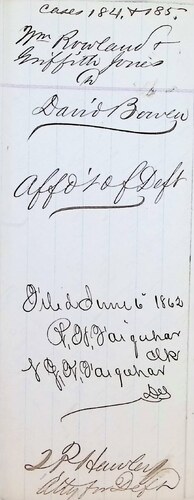 Cases 184. & 185.
Wm Rowland &
Griffith Jones
vs
David Bowen
Affd't of Deft
Filed June 6th 1862
Farquhar
Clk
Farquhar
Hawley
Atty for Deft